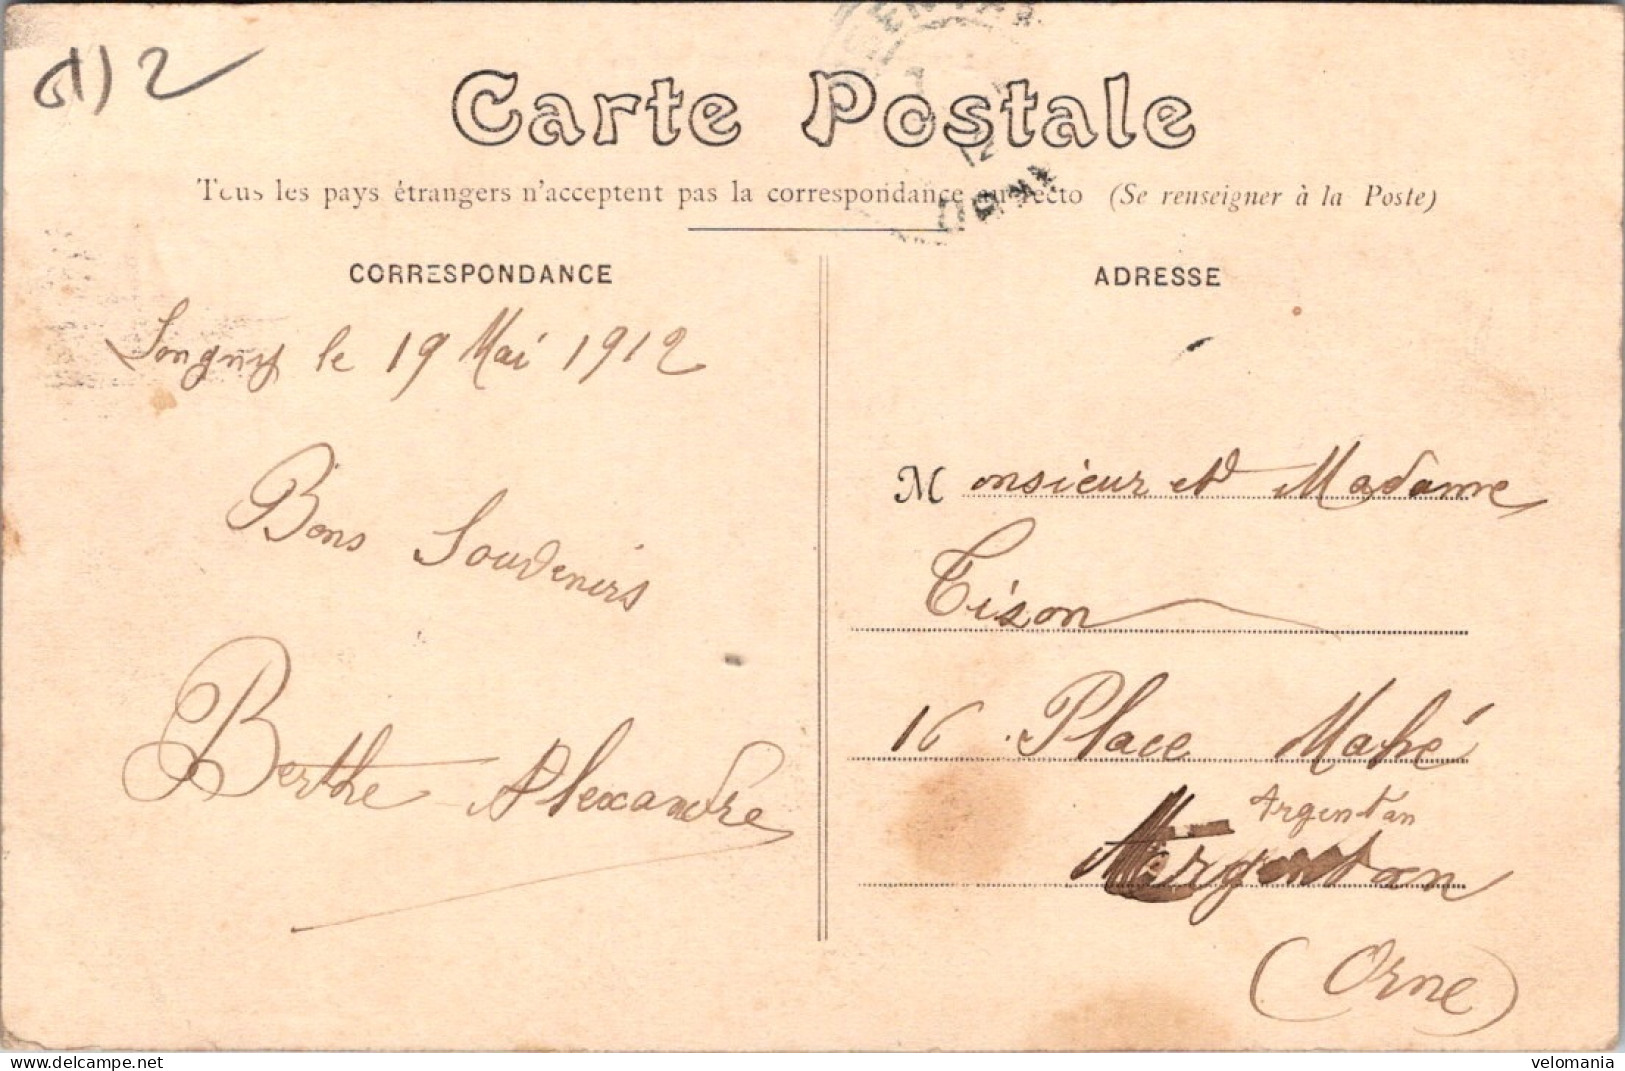 2
Carte Postale
Tous les pays étrangers n'acceptent pas la correspondance au recto (Se renseigner à la Poste)
ORNE
CORRESPONDANCE
Longny le 19 Mai 1912
Bons Souvenirs
Berthe Alexandre
ADRESSE
Monsieur et Madame
Tison
16 Place Mahé
Argentan
Argentan
(Orne)
www.delcampe.net
velomania